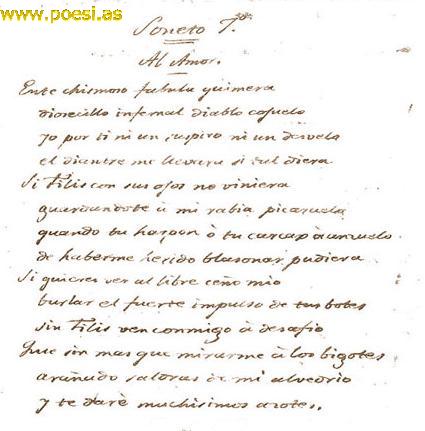 www.poesi.as
Soneto 7.º
Al Amor.
Ente chismoso fabula quimera
diosecillo infernal diablo cojuelo
yo por ti ni un suspiro ni un desvelo
el diantre me llevara si tal diera
Si Filis con sus ojos no viniera
guardandote à mi rabia picaruelo
quando tu harpon ò tu carcax à un vuelo
de haberme herido blasonar pudiera
Si quieres ver al libre ceño mio
burlar el fuerte impulso de tus botes
sin Filis ven conmigo à desafio
Que sin mas que mirarme à los bigotes
arañado saldras de mi alvedrio
y te darè muchisimos azotes.